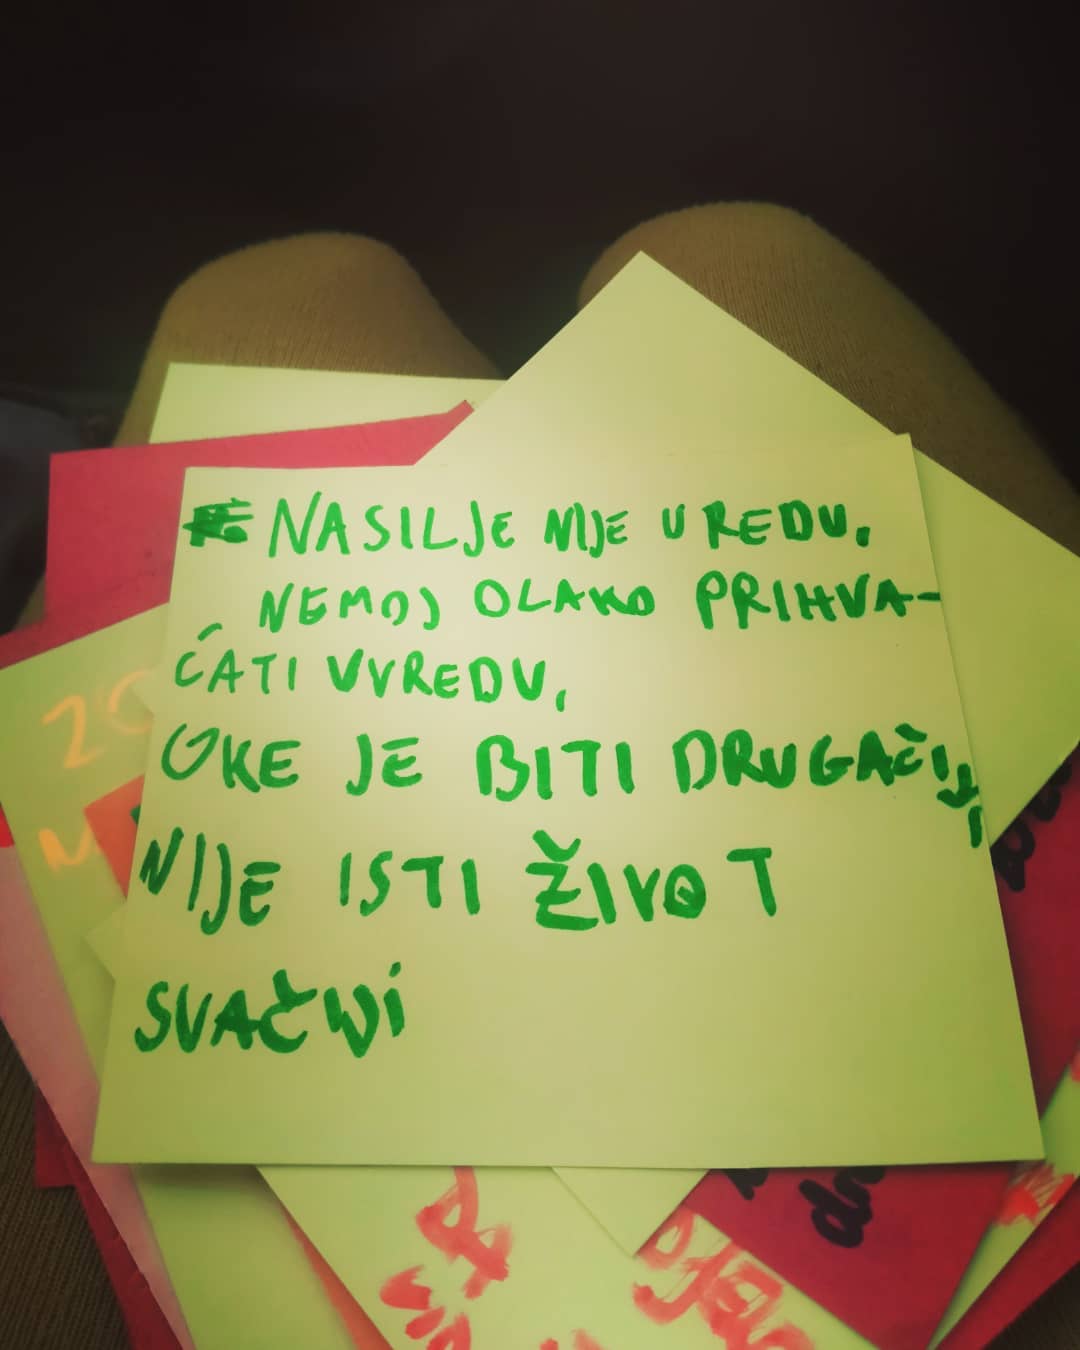 NASILJE NIJE U REDU,
NEMOJ OLAKO PRIHVA-
ĆATI UVREDU,
OKE JE BITI DRUGAČIJI
NIJE ISTI ŽIVOT
SVAČIJI
20
M